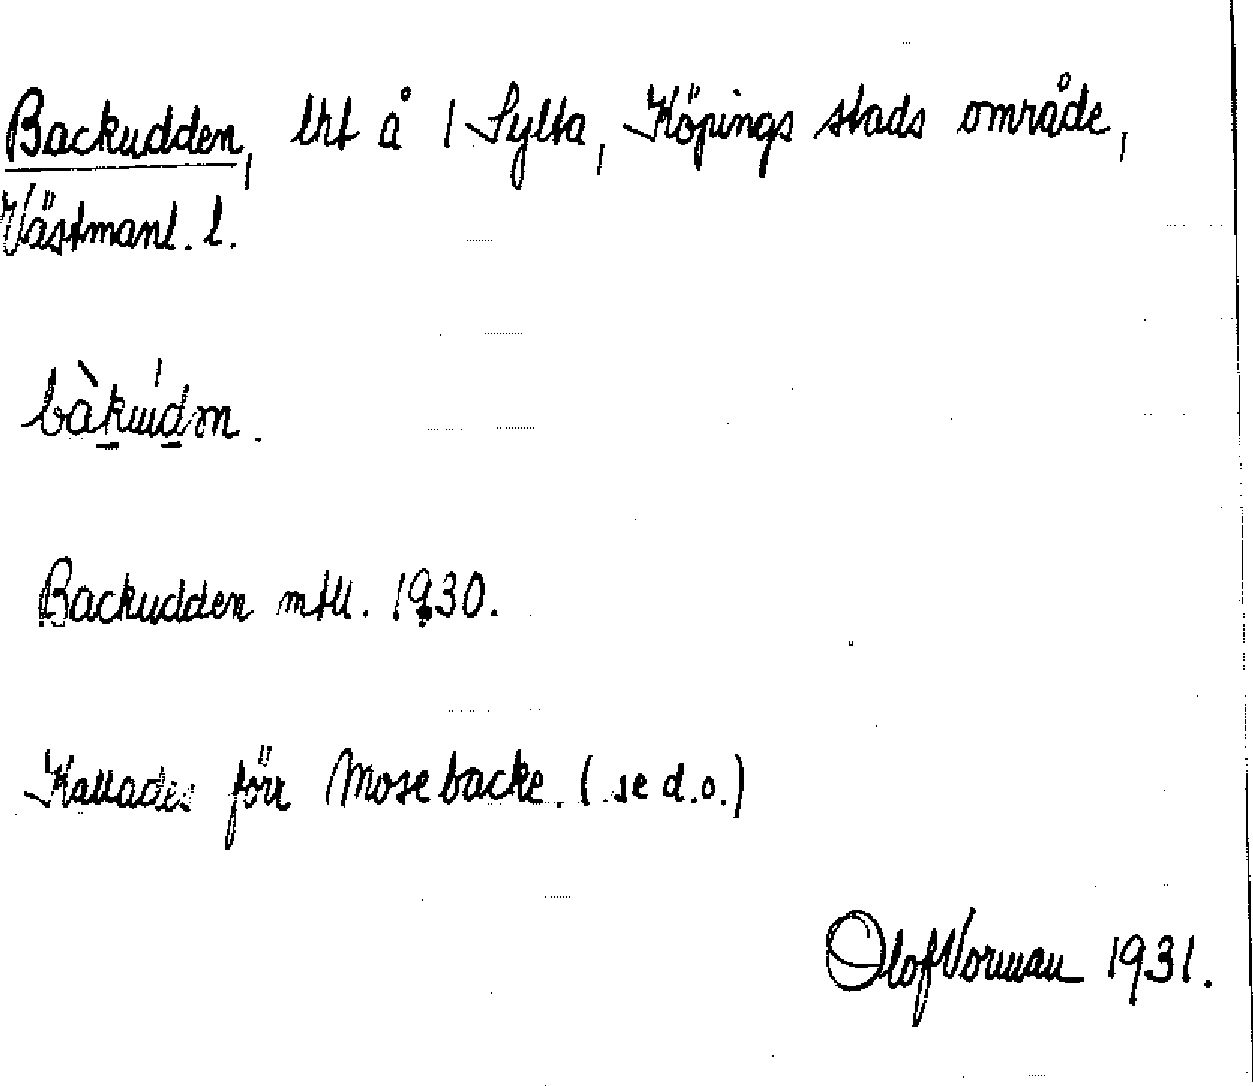 Backudden, lht å 1 Sylta, Köpings stads område,
Västmanl. l.
Backudden mtll. 1930.
Kallades förr Mosebacke. (se d.o.)
Olof Norman 1931.